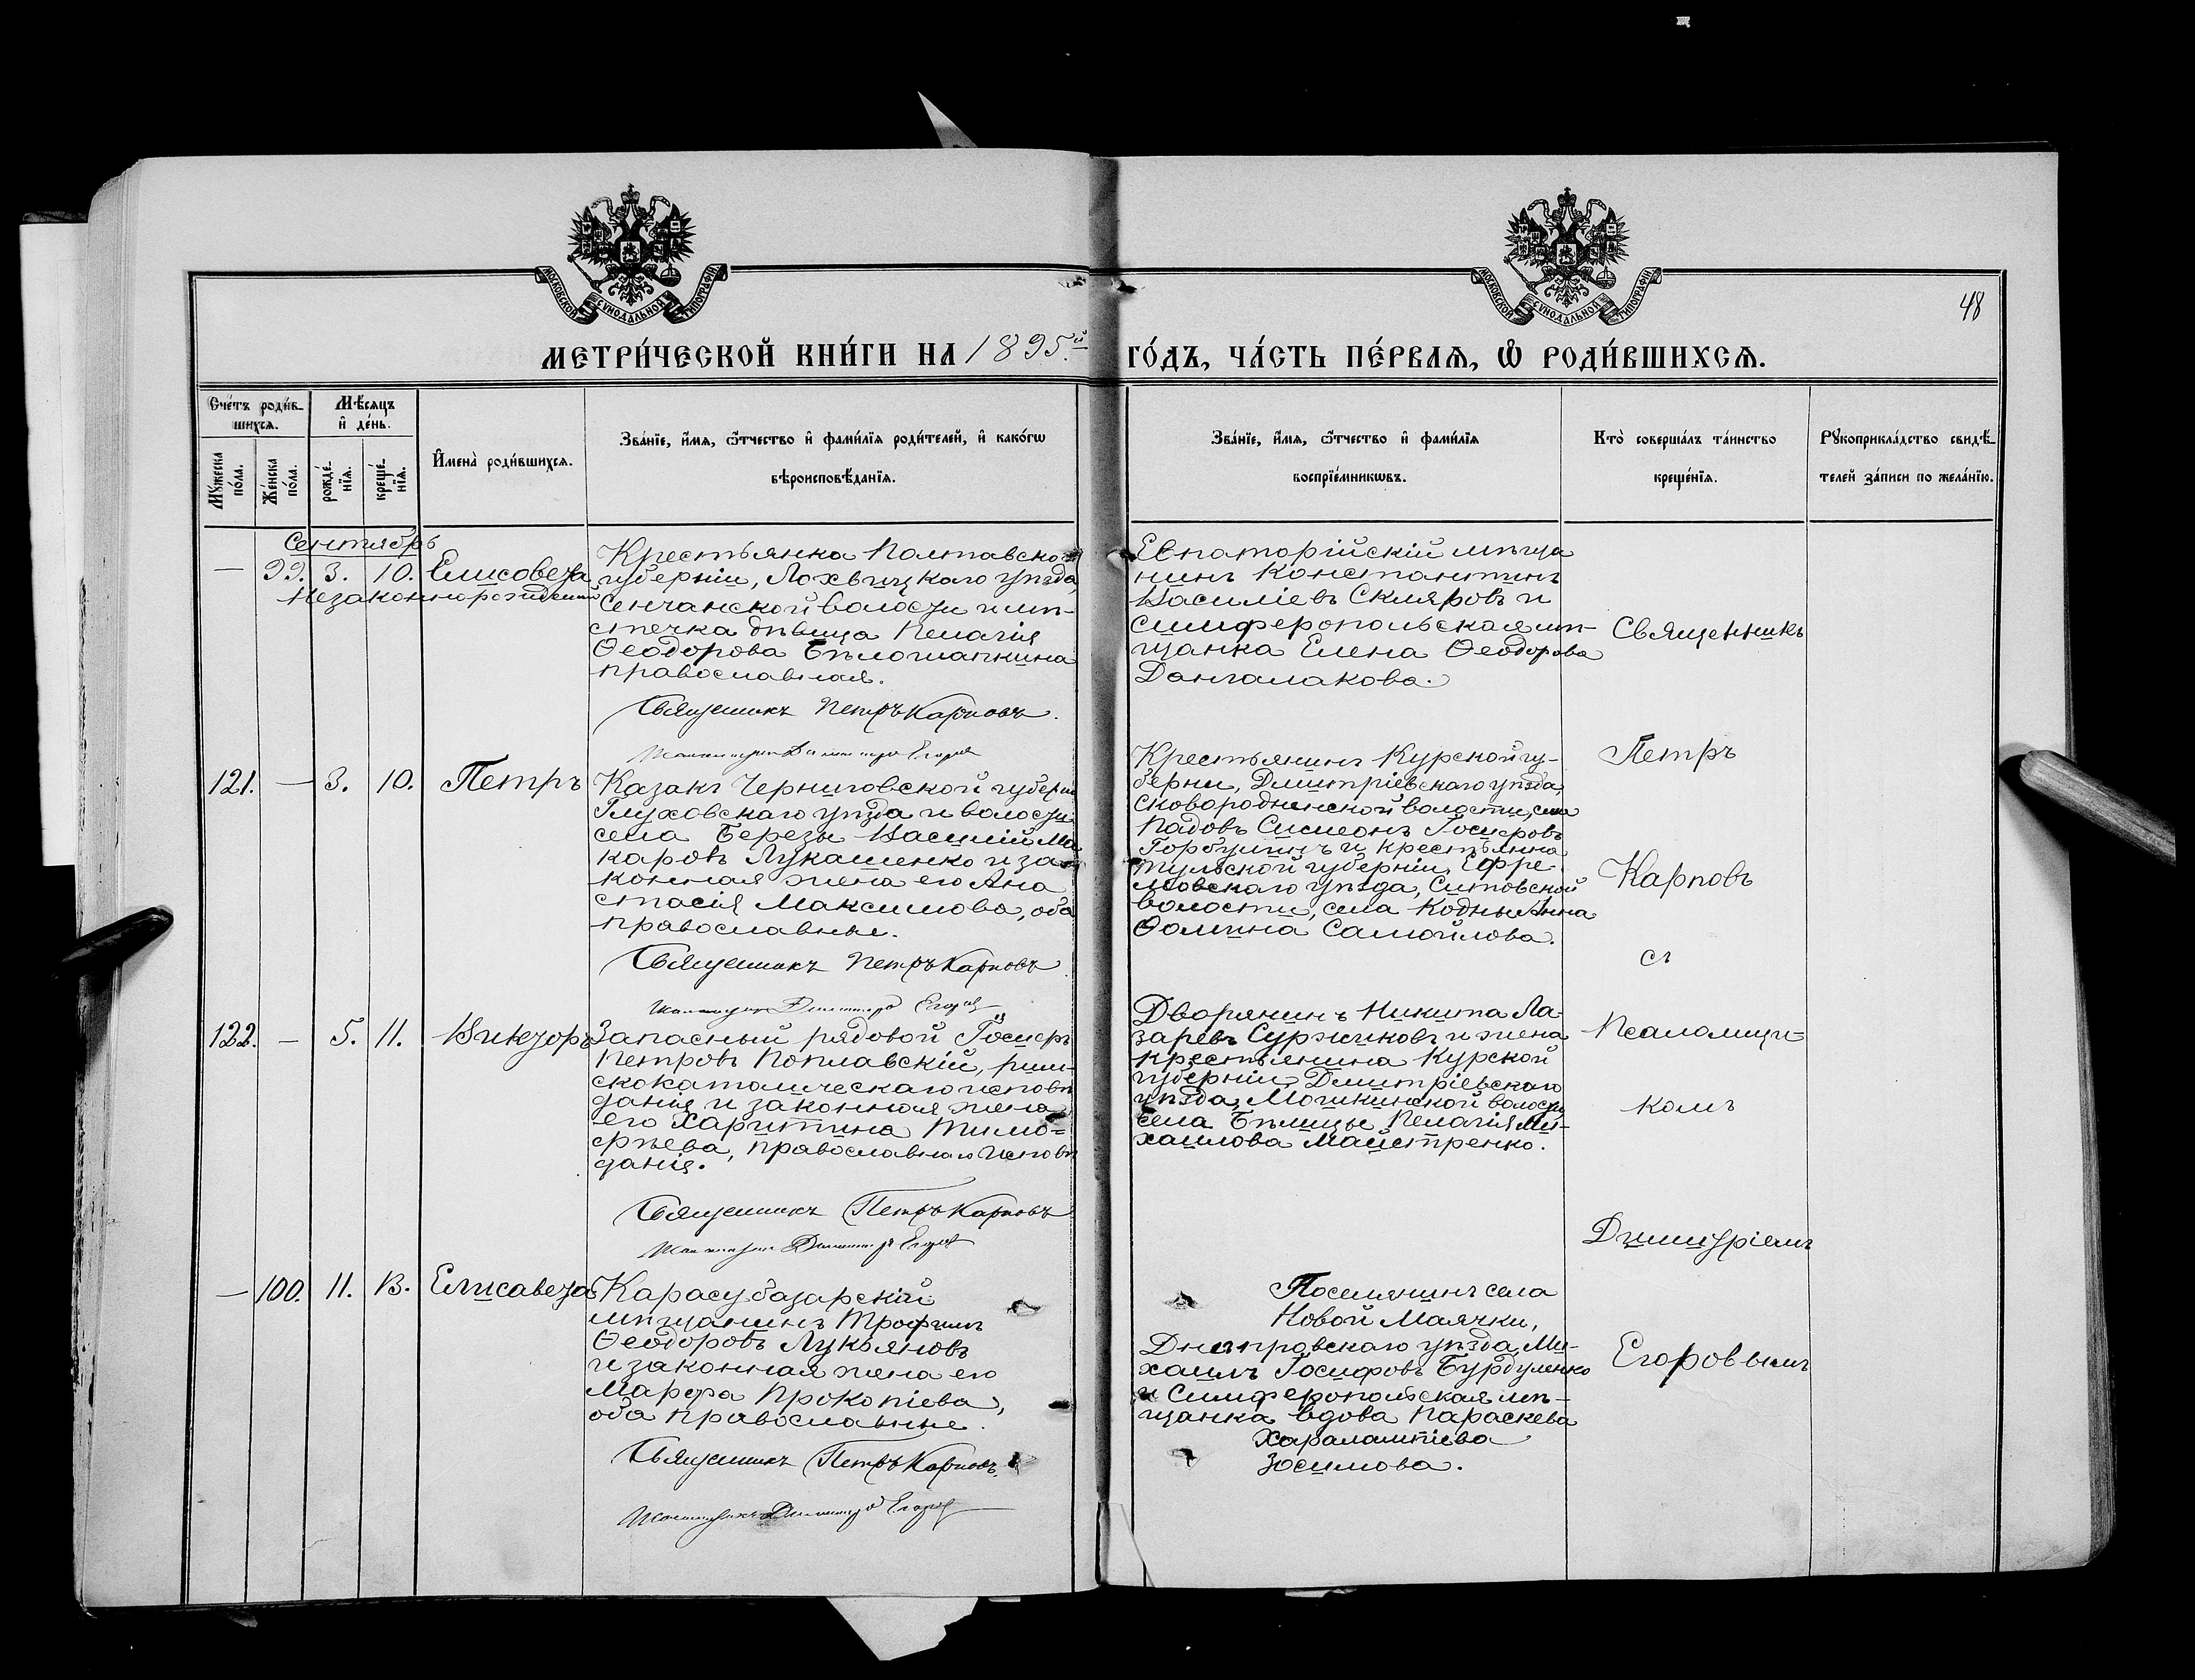 МОСКОВСКОЙ СѴНОДАЛЬНОЙ ТИПОГРАФІИ
МОСКОВСКОЙ СѴНОДАЛЬНОЙ ТИПОГРАФІИ
48
МЕТРИ́ЧЕСКОЙ КНИ́ГИ НА 1895й
ГО́ДЪ, ЧА́СТЬ ПЕ́РВАѦ, Ѿ РОДИ́ВШИХСѦ.
Сче́тъ роди́в-
шихсѧ.
Мѣ́сѧцъ
и҆ де́нь.
Мꙋ́жеска по́ла.
Же́нска по́ла.
рожде́-нїѧ.
креще́-нїѧ.
И҆мена̀ роди́вшихсѧ.
Зва́нїе, и҆́мѧ, ѻ҆́тчество и҆ фами́лїѧ роди́телей, и҆ како́гѡ
вѣроисповѣ́данїѧ.
Зва́нїе, и҆́мѧ, ѻ҆́тчество и҆ фами́лїѧ
воспрїе́мникѡвъ.
Кто̀ соверша́лъ та́инство
креще́нїѧ.
Рꙋкоприкла́дство свидѣ́-
телей за́писи по жела́нїю.
Сентябрь
— 99. 3. 10. Елисавета
Незаконнорожденная
Крестьянка Полтавской
губерніи, Лохвицкаго уѣзда,
Сенчанской волости и мѣ-
стечка дѣвица Пелагія
Ѳеодорова Бѣлошапкина
православная.
Священникъ Петръ Карповъ.
Псаломщикъ Димитрій Егоровъ
Евпаторійскій мѣща
нинъ Константинъ
Василіевъ Скляровъ и
Симферопольская мѣ-
щанка Елена Ѳеодорова
Донгалакова.
Священникъ
121. — 3. 10. Петръ
Казакъ Черниговской губерніи
Глуховскаго уѣзда и волости
села Березы Василій Ма
каровъ Лукашенко и за
конная жена его Ана
стасія Максимова, оба
православные.
Священникъ Петръ Карповъ
Псаломщикъ Димитрій Егоровъ
Крестьянинъ Курской гу-
берни, Димитріевскаго уѣзда
Сковородненской волости, села
Падовъ Симеонъ Іосифовъ
и крестьянка
Тульской губерніи, Ефре
мовскаго уѣзда, Ситовской
волости, села Кодны Анна
Ѳомина Самойлова.
Петръ
Карповъ
съ
122. — 5. 11. Викторъ
Запасный рядовой Іосифъ
Петровъ Поплавскій, рим-
скокатолическаго исповѣ
данія и законная жена
его Харитина Тимо=
фѣева, православнаго исповѣ
данія.
Священникъ Петръ Карповъ
Псаломщикъ Димитрій Егоровъ
Дворянинъ Никита Ла-
заревъ Суржиковъ и жена
крестьянина Курской
губерніи, Димитріевскаго
уѣзда, волости,
села Бѣлицы Пелагія Ми-
хаилова Майстренко.
Псаломщи=
комъ
Димитріемъ
— 100. 11. 13. Елисавета
Карасубазарскій
мѣщанинъ Трофимъ
Ѳеодоровъ Лукьяновъ
и законная жена его
Марфа Прокопіева,
оба православные.
Священникъ Петръ Карповъ.
Псаломщикъ Димитрій Егоровъ
Поселянинъ села
Новой Маячки,
Днепровскаго уѣзда, Ми-
хаилъ Іосифовъ Бурдуленко
и Симферопольская мѣ-
щанка вдова Параскева
Харалампіева
Зосимова.
Егоровымъ